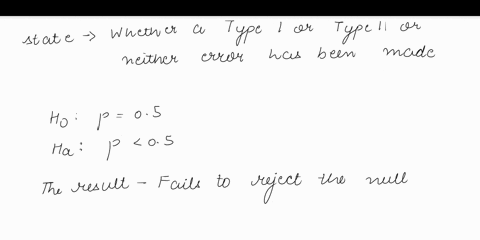 state → Whether a Type I or Type II or
neither error has been made
H0: p = 0.5
Ha: p < 0.5
The result - Fails to reject the null